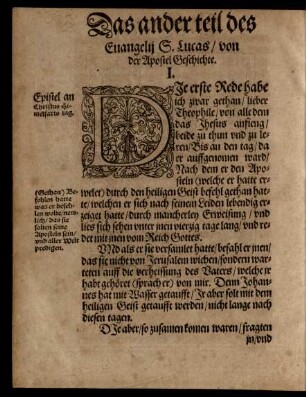 Das ander teil des
Euangelij S. Lucas / von
der Apostel Geschichte.
I.
Epistel an
Christus Hi-
melfarts tag.
DJe erste Rede habe
ich zwar gethan / lieber
Theophile / von alle dem
das Jhesus anfieng /
beide zu thun vnd zu le-
ren / Bis an den tag / da
er auffgenomen ward /
Nach dem er den Apo-
steln (welche er hatte er-
welet) durch den heiligen Geist befehl gethan hat-
te / welchen er sich nach seinem Leiden lebendig er-
zeiget hatte / durch mancherley Erweisung / vnd
lies sich sehen vnter jnen vierzig tage lang / vnd re-
det mit jnen vom Reich Gottes.
(Gethan) Be-
fohlen hatte
was er befeh-
len wolte / nem-
lich / das sie
solten seine
Aposteln sein /
vnd aller Welt
predigen.
VNd als er sie versamlet hatte / befahl er jnen /
das sie nicht von Jerusalem wichen / sondern war-
teten auff die verheissung des Vaters / welche jr
habt gehöret (sprach er) von mir. Denn Johan-
nes hat mit Wasser getaufft / Jr aber solt mit dem
heiligen Geist getaufft werden / nicht lange nach
diesen tagen.
DJe aber / so zusamen komen waren / fragten
jn / vnd